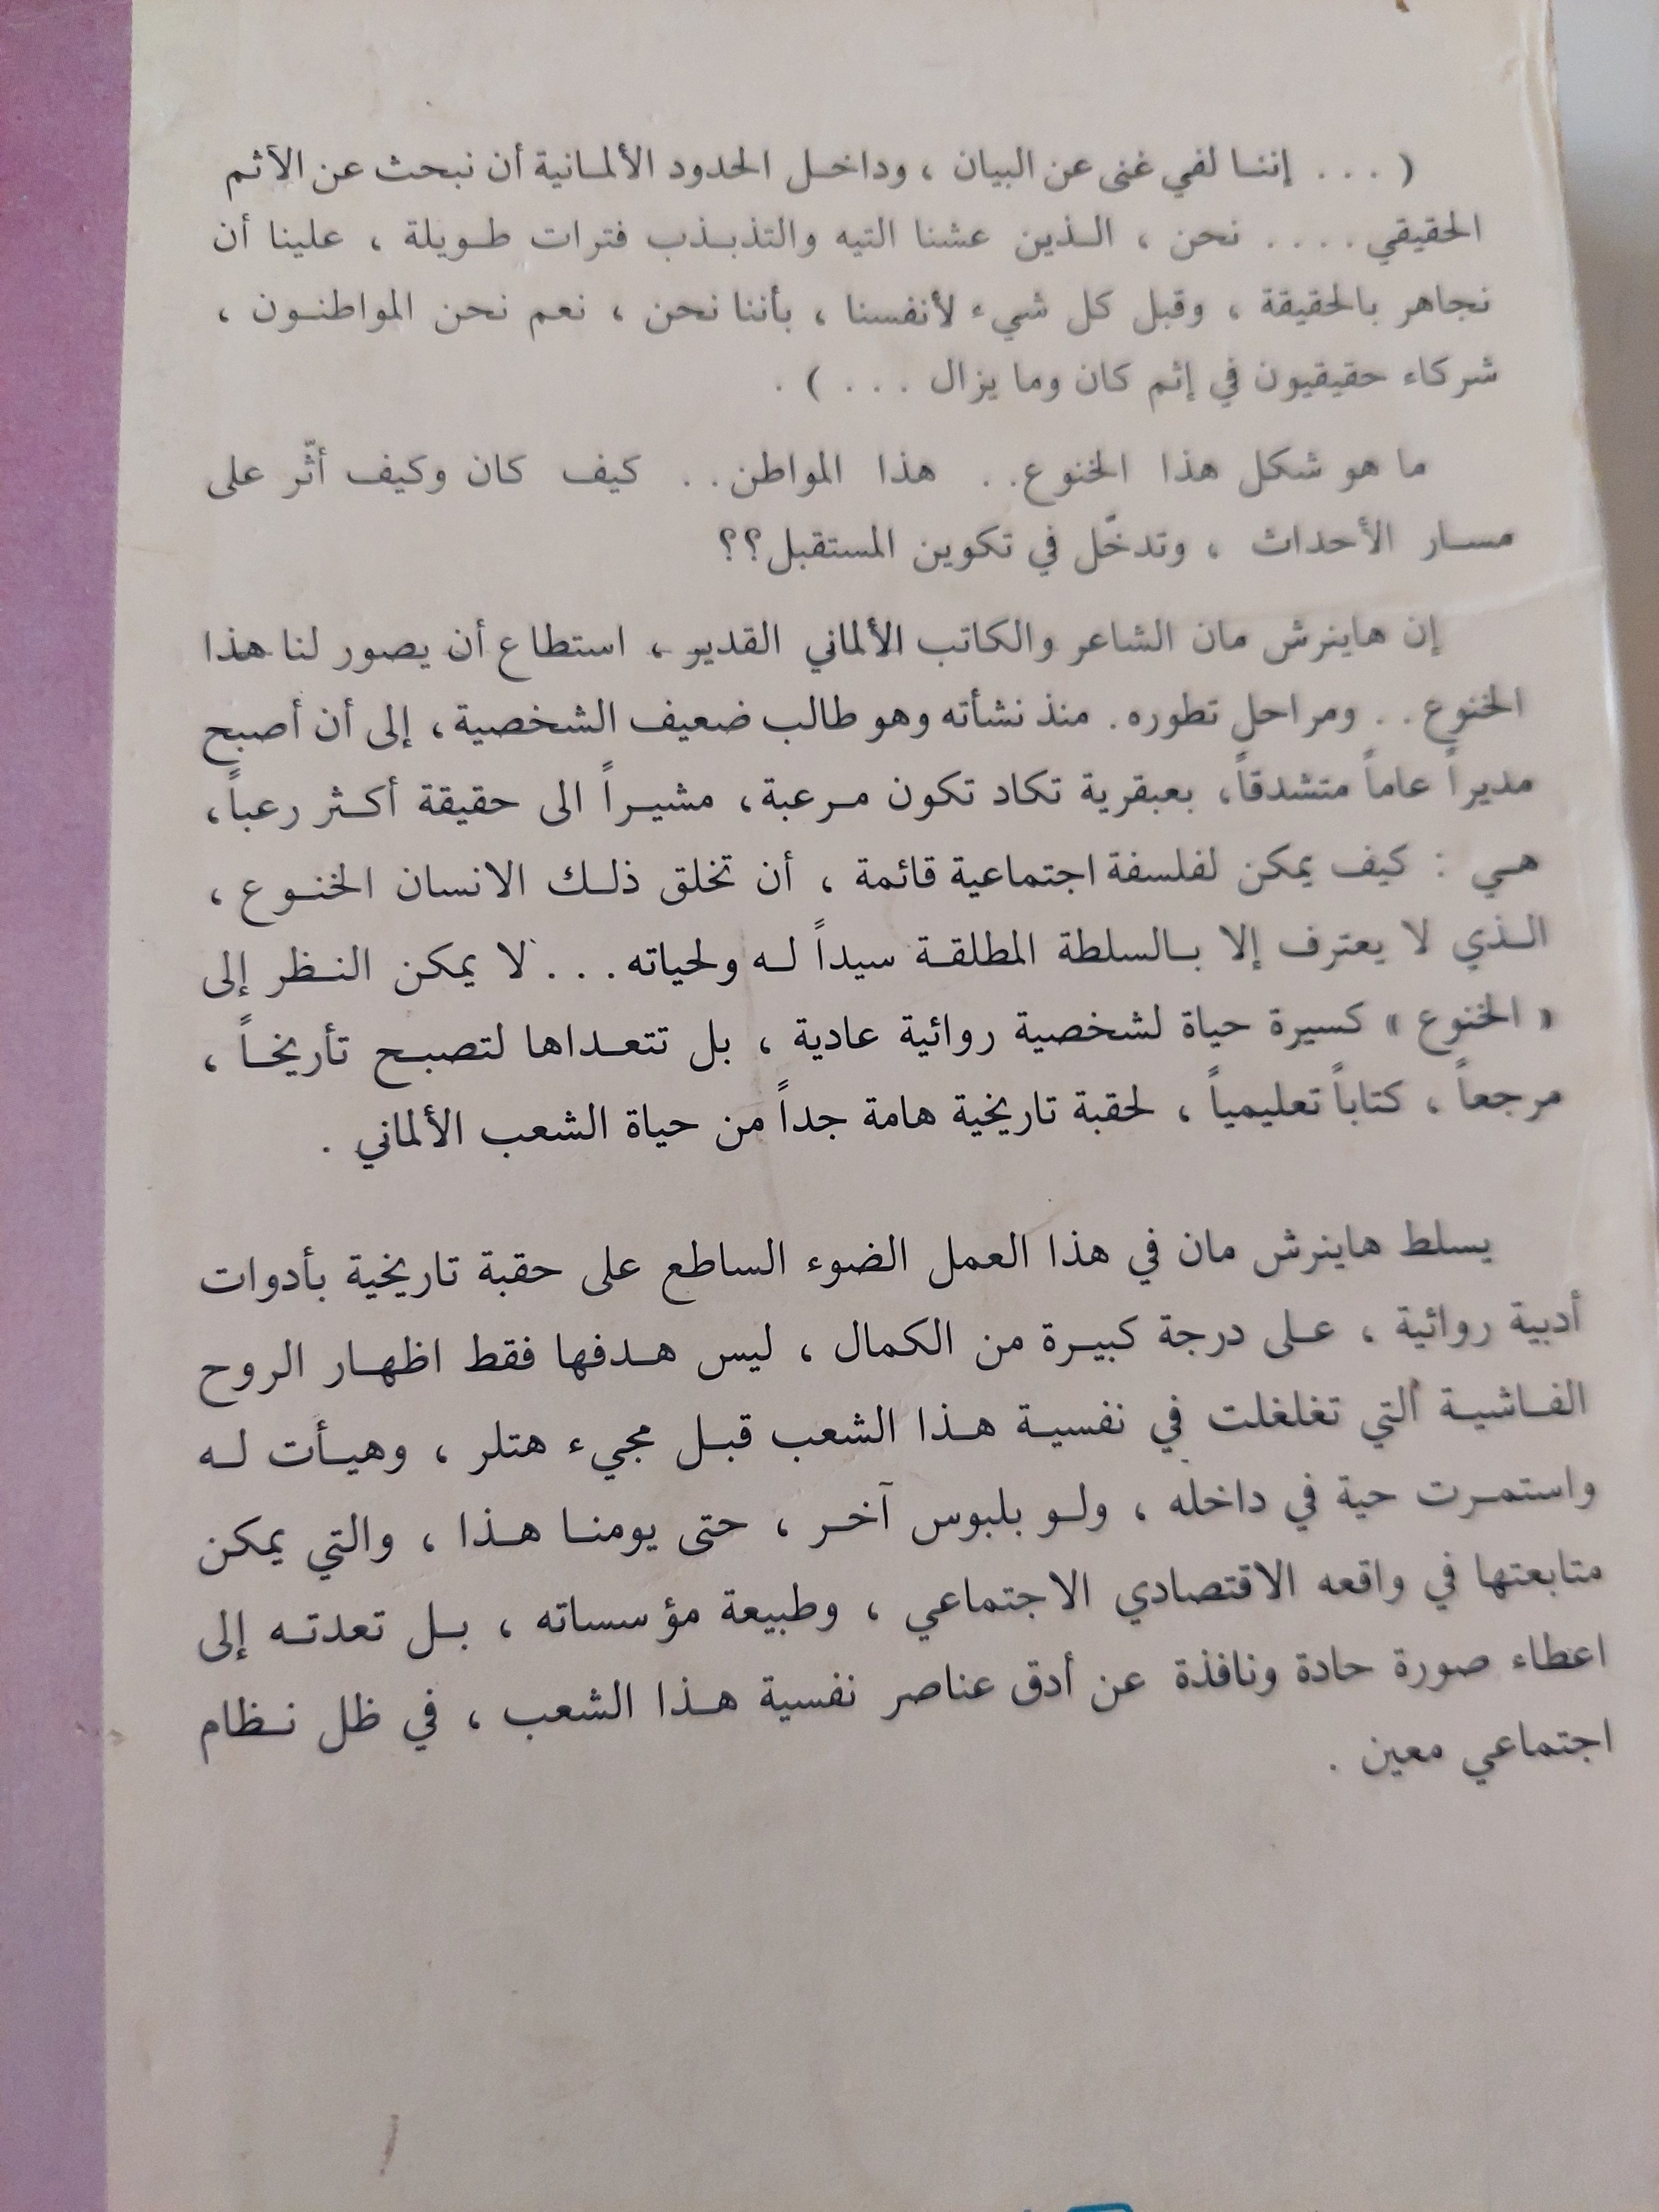 ( . . . إننا لفي غنى عن البيان ، وداخل الحدود الألمانية أن نبحث عن الآثم
الحقيقي . . . . نحن ، الذين عشنا التيه والتذبذب فترات طويلة ، علينا أن
نجاهر بالحقيقة ، وقبل كل شيء لأنفسنا ، بأننا نحن ، نعم نحن المواطنون ،
شركاء حقيقيون في إثم كان وما يزال . . . ) .
ما هو شكل هذا الخنوع . . هذا المواطن . . كيف كان وكيف أثّر على
مسار الأحداث ، وتدخّل في تكوين المستقبل؟؟
إن هاينرش مان الشاعر والكاتب الألماني القدير ، استطاع أن يصور لنا هذا
الخنوع . . ومراحل تطوره . منذ نشأته وهو طالب ضعيف الشخصية ، إلى أن أصبح
مديراً عاماً متشدقاً ، بعبقرية تكاد تكون مرعبة ، مشيراً الى حقيقة أكثر رعباً ،
هي : كيف يمكن لفلسفة اجتماعية قائمة ، أن تخلق ذلك الانسان الخنوع ،
الذي لا يعترف إلا بالسلطة المطلقة سيداً له ولحياته . . . لا يمكن النظر إلى
« الخنوع » كسيرة حياة لشخصية روائية عادية ، بل تتعداها لتصبح تأريخاً ،
مرجعاً ، كتاباً تعليمياً ، لحقبة تاريخية هامة جداً من حياة الشعب الألماني .
يسلط هاينرش مان في هذا العمل الضوء الساطع على حقبة تاريخية بأدوات
أدبية روائية ، على درجة كبيرة من الكمال ، ليس هدفها فقط اظهار الروح
الفاشية التي تغلغلت في نفسية هذا الشعب قبل مجيء هتلر ، وهيأت له
واستمرت حية في داخله ، ولو بلبوس آخر ، حتى يومنا هذا ، والتي يمكن
متابعتها في واقعه الاقتصادي الاجتماعي ، وطبيعة مؤسساته ، بل تعدته إلى
اعطاء صورة حادة ونافذة عن أدق عناصر نفسية هذا الشعب ، في ظل نظام
اجتماعي معين .